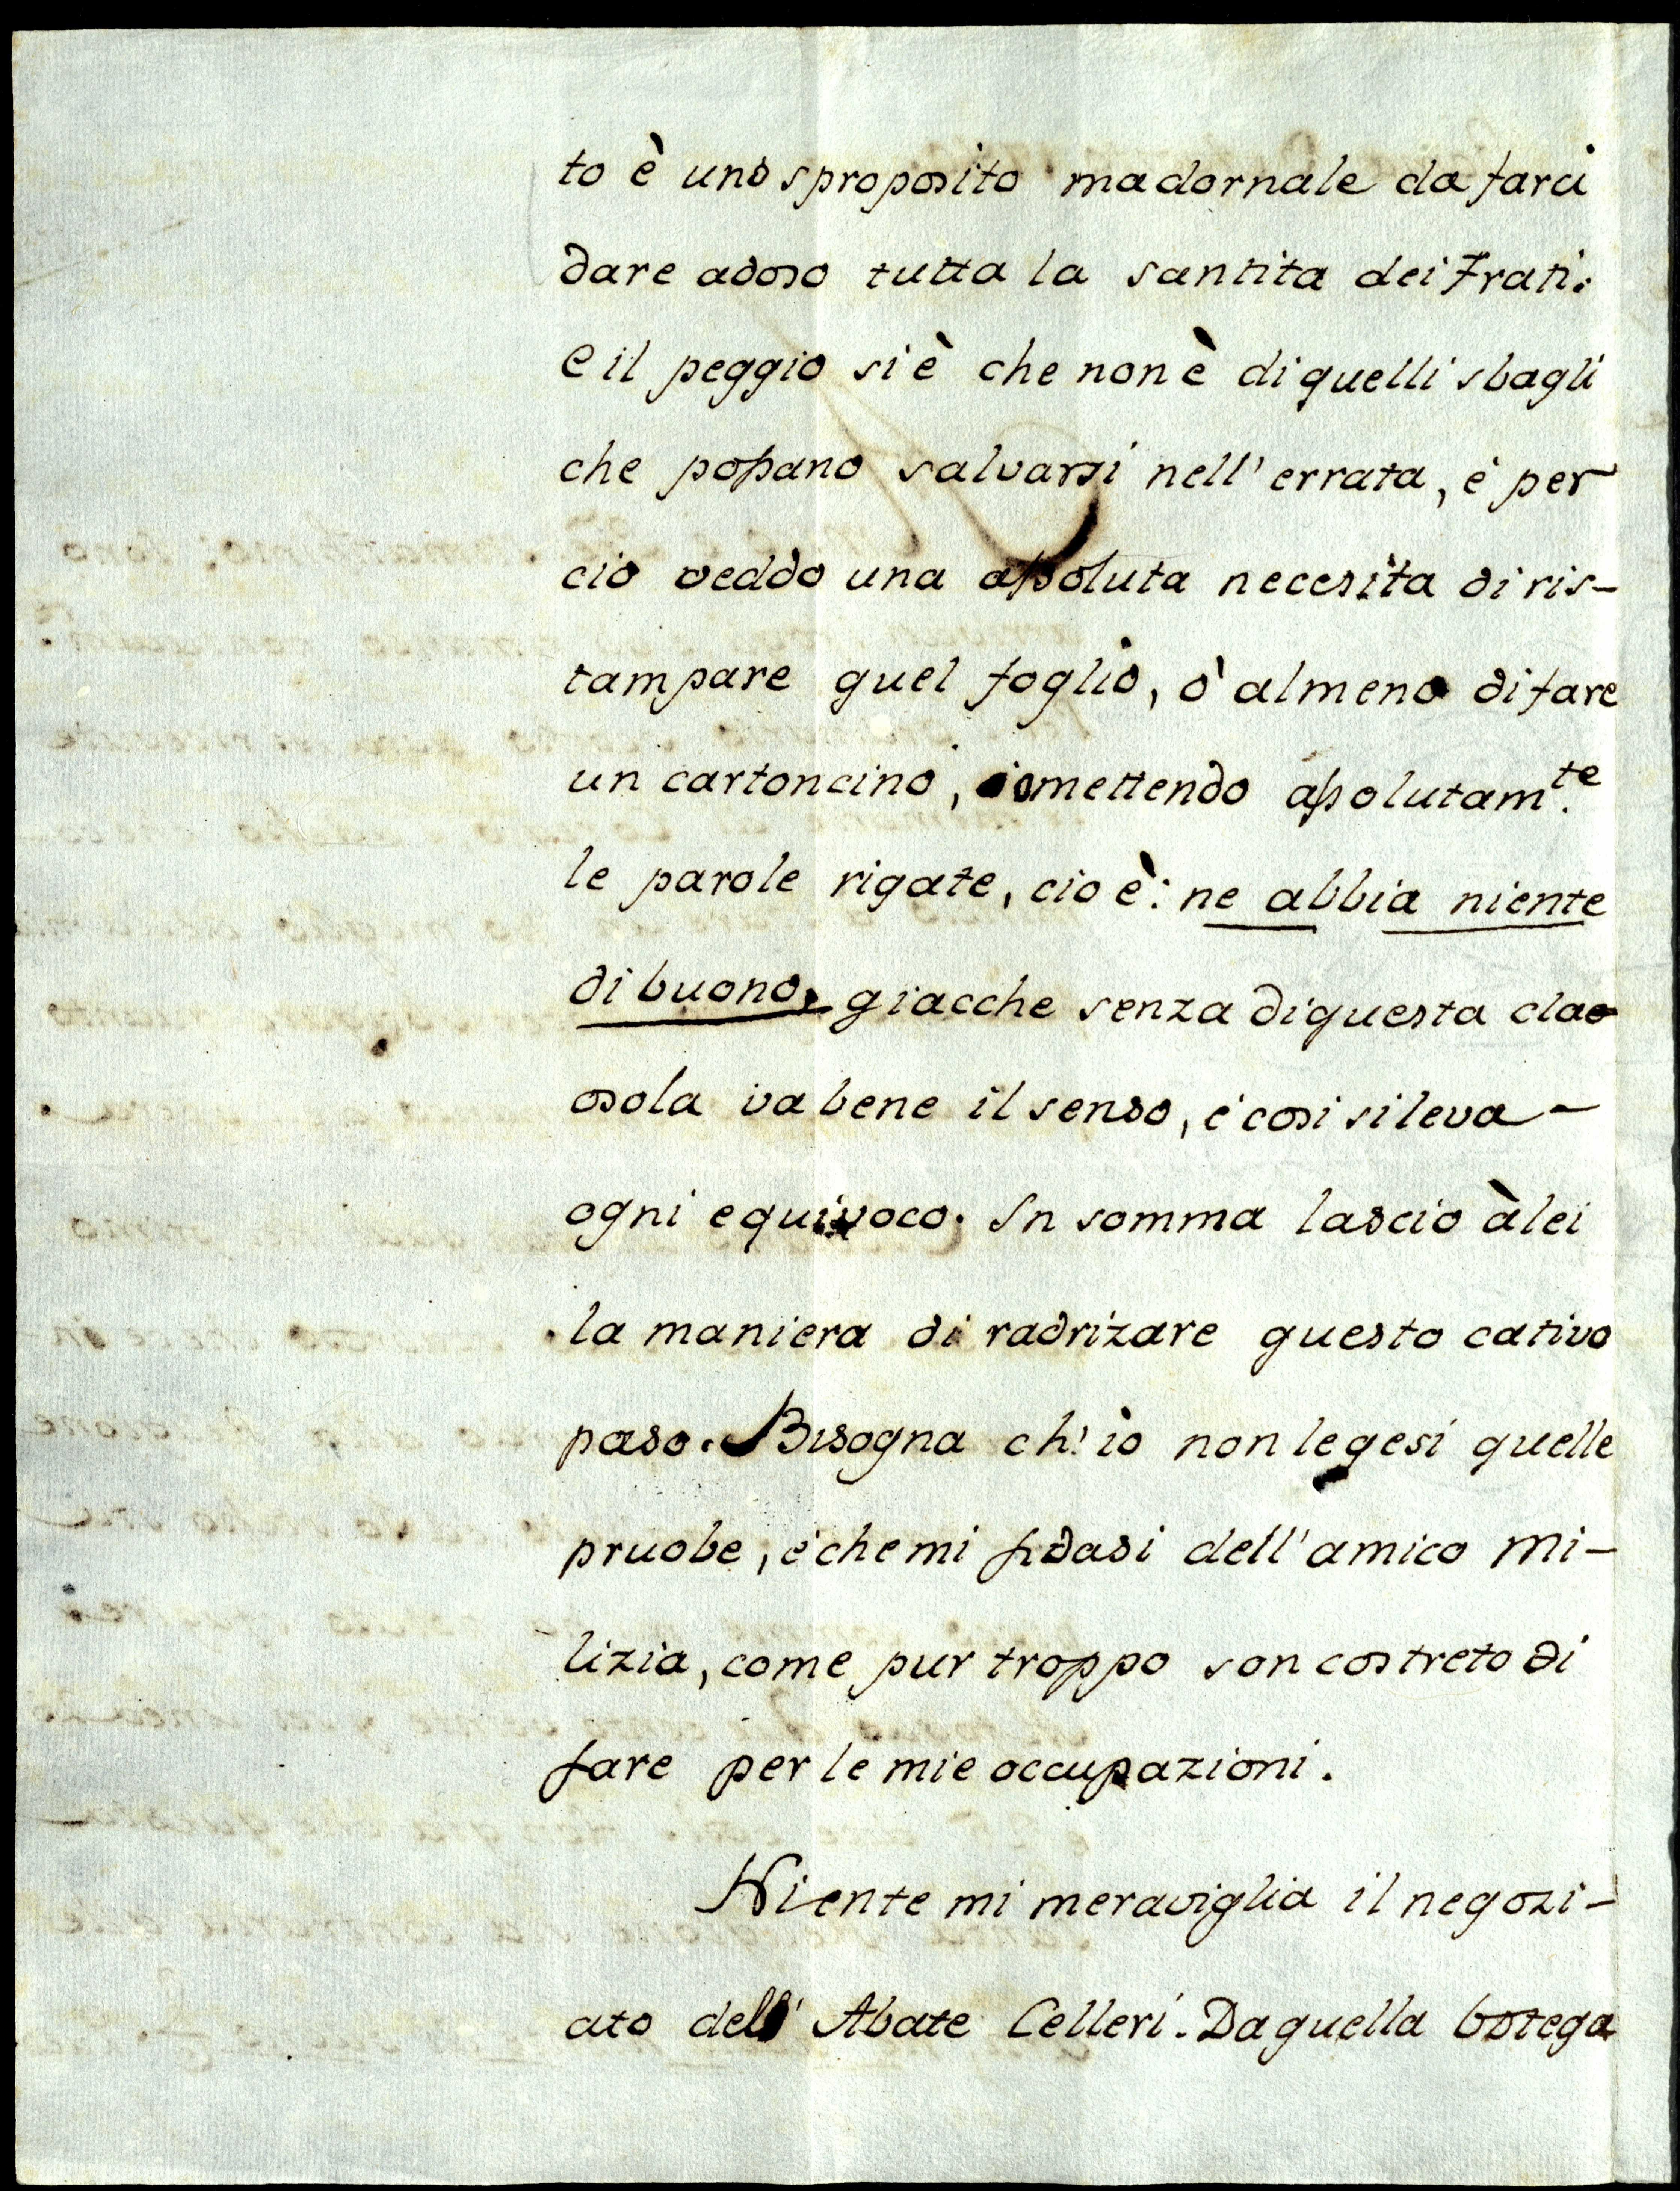 to è uno sproposito madornale da farci
dare adoso tutta la santita dei Frati.
e il peggio si è che non è di quelli sbagli
che possano salvarsi nell' errata, é per
cio veddo una assoluta necesita di ris-
tampare quel foglio, ò almeno di fare
un cartoncino, omettendo assolutam.te
le parole rigate, cio è: ne abbia niente
di buono, giacche senza di questa clao
osola va bene il senso, é cosi si leva -
ogni equivoco. In somma lascio à lei
la maniera di radrizare questo cativo
paso. Bisogna ch' io non legesi quelle
pruobe, é che mi fidasi dell' amico Mi-
lizia, come pur troppo son costreto di
fare per le mie occupazioni.
Niente mi meraviglia il negozi-
ato dell' Abate Celleri. Da quella botega